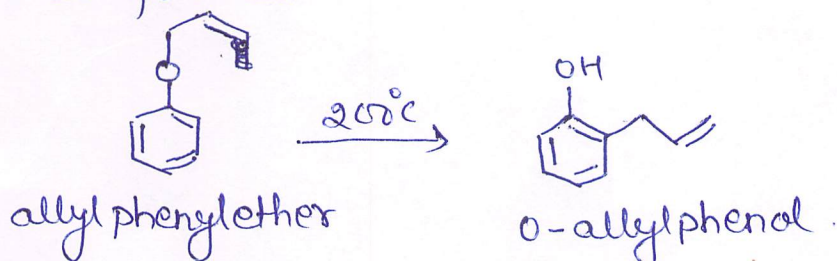 O
OH
200°C
allylphenylether
o-allylphenol.